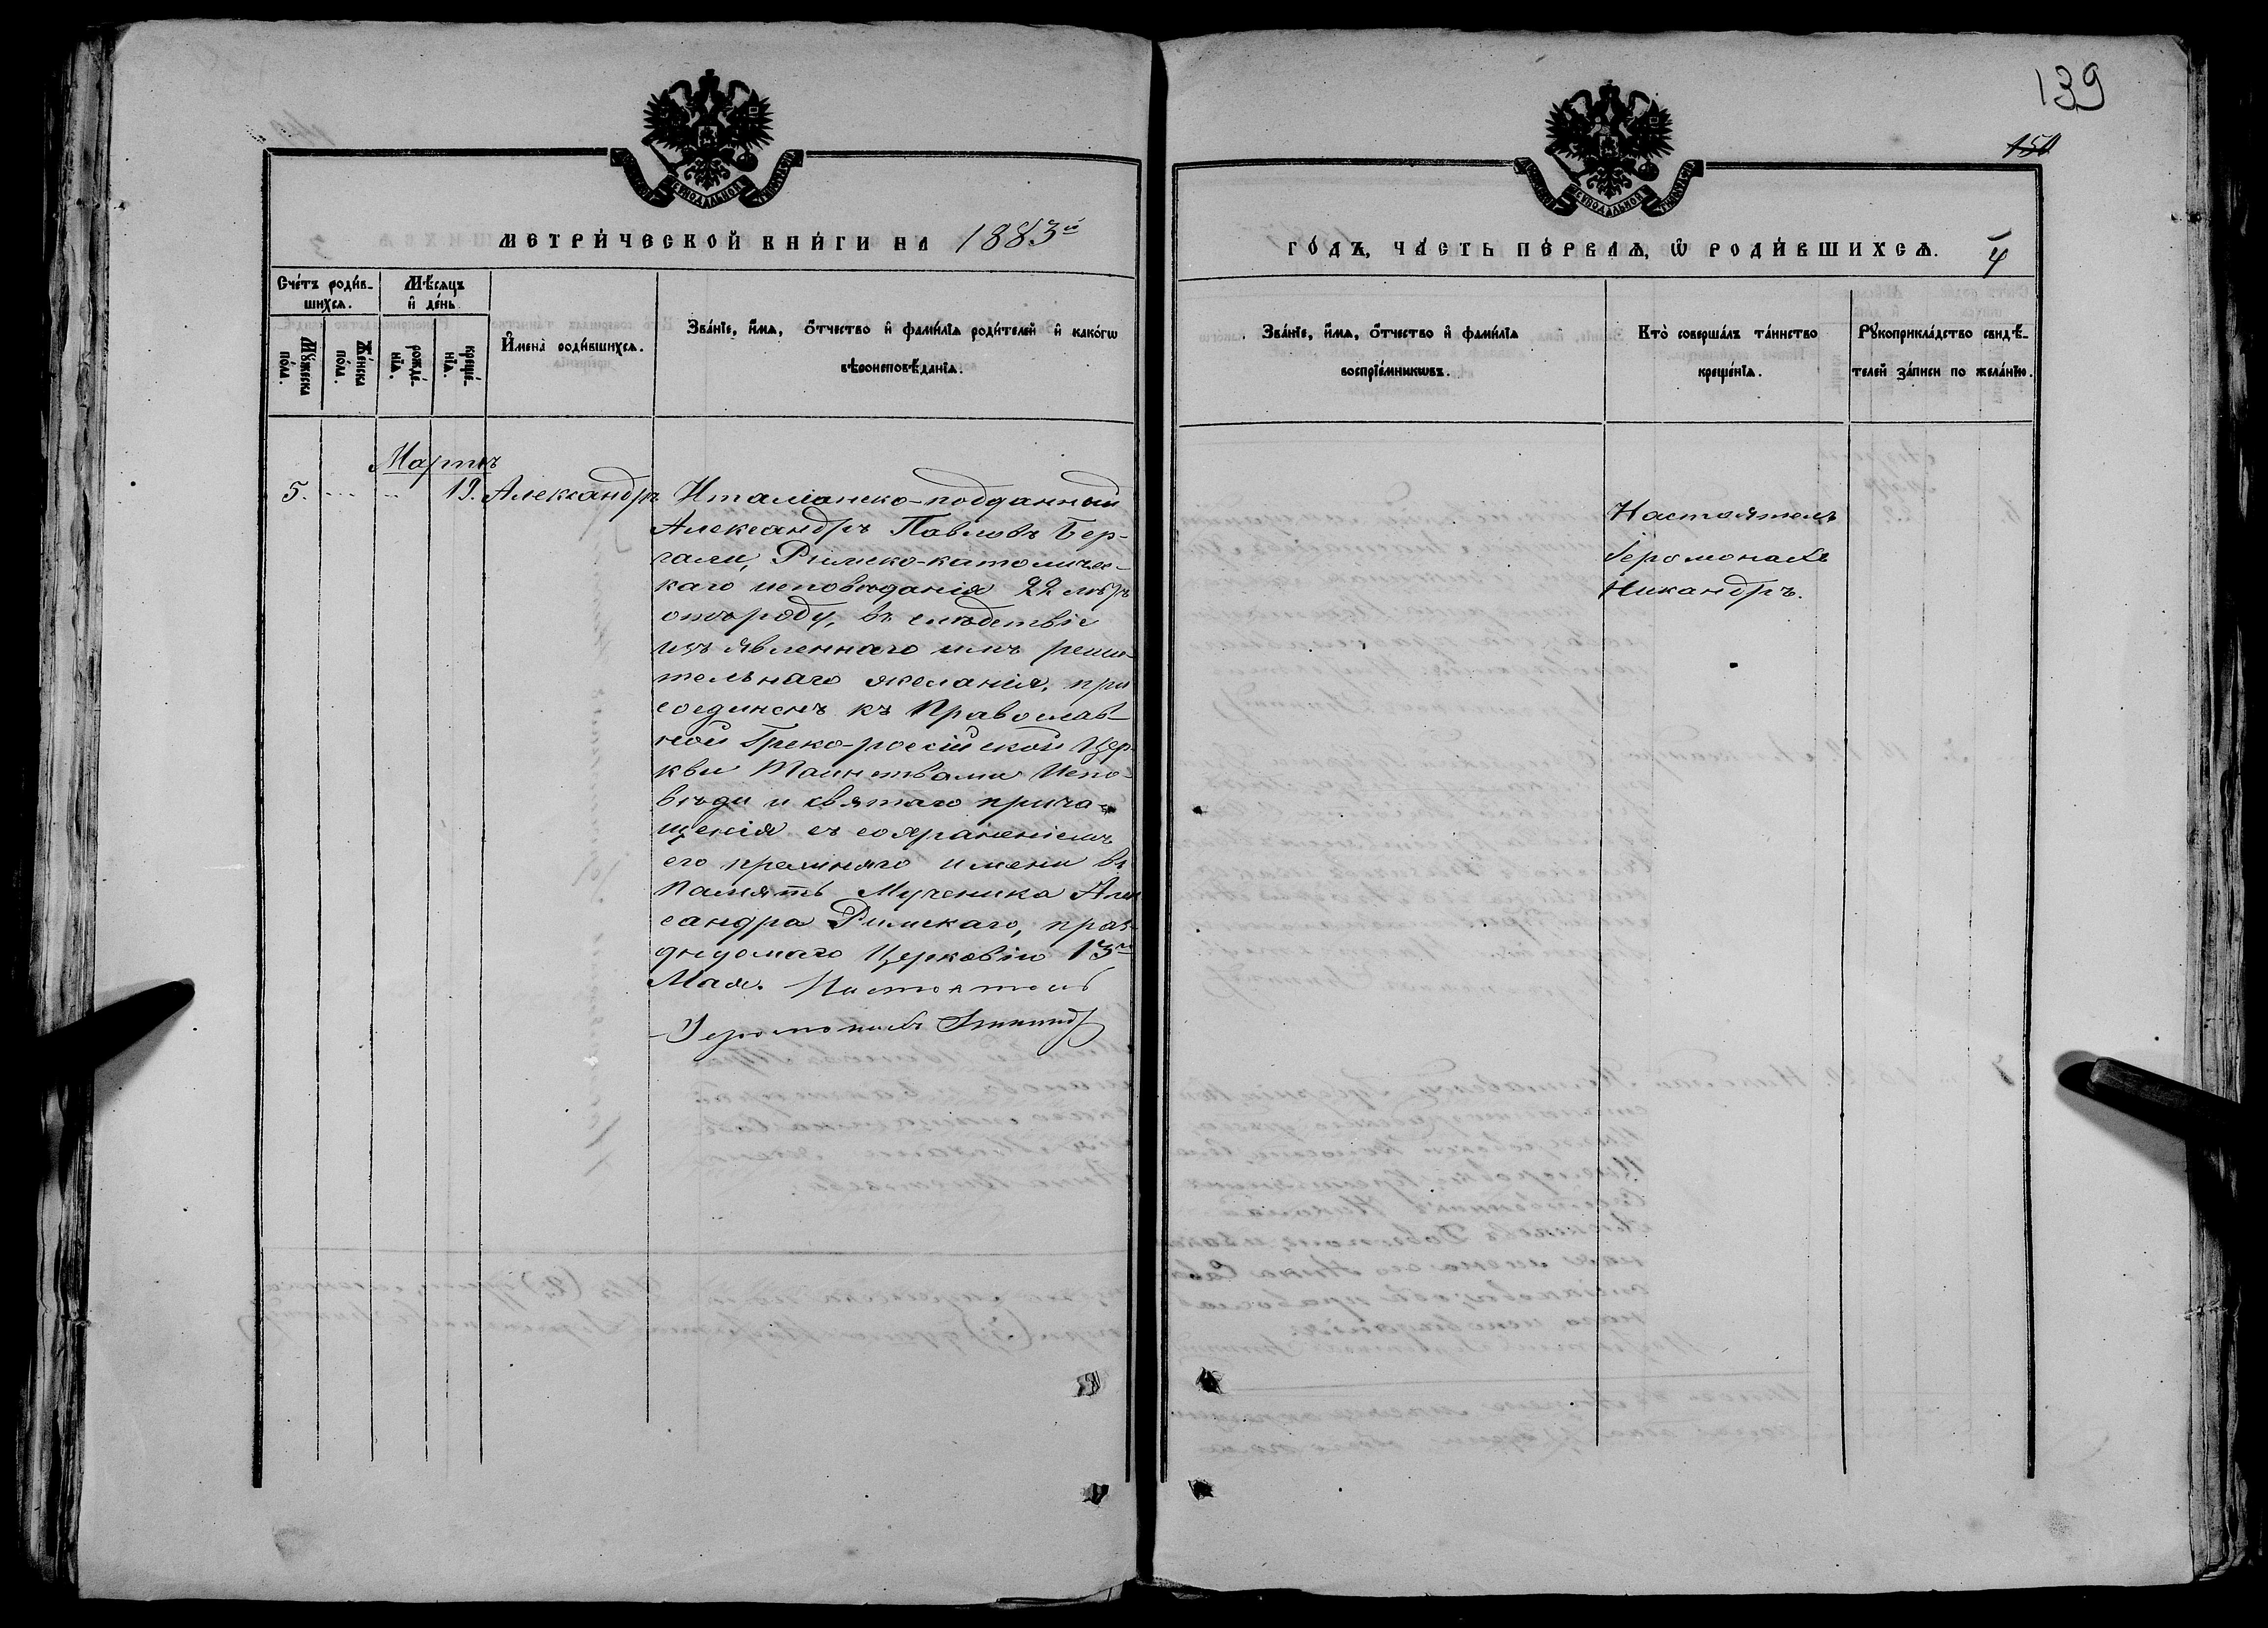 139
151
МЕТРИ́ЧЕСКОЙ КНИ́ГИ НА 1883й
ГО́ДЪ, ЧА́СТЬ ПЕ́РВАѦ, Ѡ҆ РОДИ́ВШИХСѦ.
4
Сче́тъ роди́в-
шихсѧ.
Мѣ́сѧцъ
и҆ де́нь
Мꙋ́жеска
по́ла.
Же́нска
по́ла.
рожде́-
нїѧ.
креще́-
нїѧ.
И҆мена̀ роди́вшихсѧ.
Зва́нїе, и҆́мѧ, ѻ҆́тчество и҆ фами́лїѧ роди́телей и҆ како́гѡ
вѣроисповѣ́данїѧ.
Зва́нїе, и҆́мѧ, ѻ҆́тчество и҆ фами́лїѧ
воспрїе́мникѡвъ.
Кто̀ соверша́лъ та́инство
креще́нїѧ.
Рꙋкоприкла́дство свидѣ́-
телей за́писи по жела́нїю.
Мартъ
5. ... .. 19. Александръ Италіанско-подданный
Александръ Павловъ Бер-
гали, Римско-католичес-
каго исповѣданія 22 лѣтъ
отъ роду, въ слѣдствіе
изъявленнаго имъ реши-
тельнаго желанія, при
соединенъ къ Православ-
ной Греко-россійской Цер-
кви Таинствами Испо-
вѣди и святаго прича-
щенія съ сохраненіемъ
его прежняго имени въ
память Мученика Алек
сандра Римскаго, праз-
днуемаго Церковію 13го
Мая. Настоятель
Іеромонахъ Никандръ
Настоятель
Іеромонахъ
Никандръ.